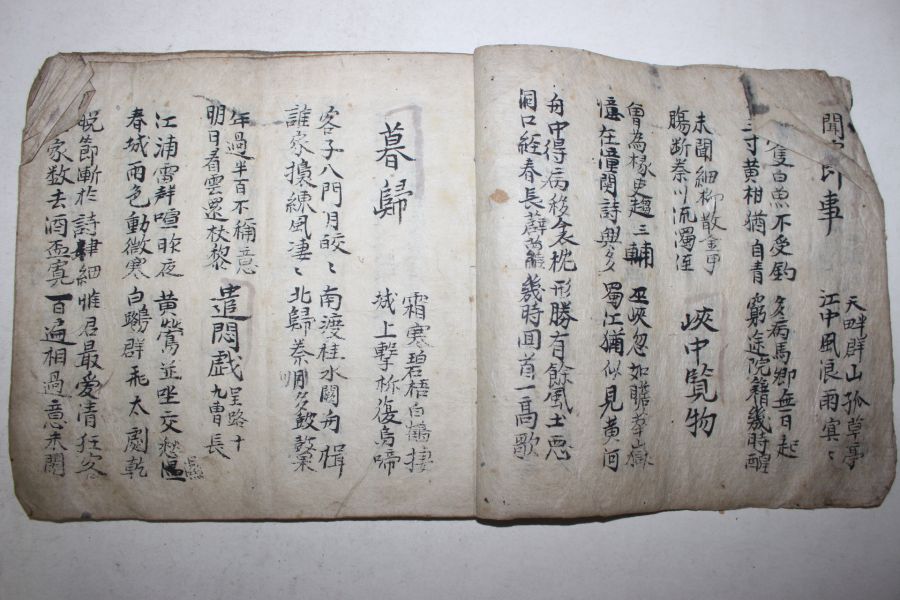 即事
天畔群山孤草亭
江中風浪雨冥〻
隻白魚不受釣
三寸黃柑猶自青
多病馬卿無日起
窮途阮籍幾時醒
未聞細柳散金甲
腸斷秦川流濁涇
峽中覧物
曾為椽吏趨三輔
憶在潼関詩興多
巫峽忽如瞻華嶽
蜀江猶似見黃河
舟中得病移衾枕
洞口経春長薜蘿
形勝有餘風土悪
幾時回首一髙歌
暮歸
霜寒碧梧白鶴棲
城上擊柝復烏啼
客子入門月皎〻
誰家擣練風凄〻
南渡桂水闕舟楫
北歸秦川多鼓鼙
年過半百不稱意
明日看雲還杖藜
遣悶戱呈路十九曹長
江浦雷聲喧昨夜
春城雨色動微寒
黃鶯並坐交愁濕
白鷺群飛太劇乾
晩節漸於詩律細
家数去酒盃寬
惟君最愛清狂客
百遍相過意未闌